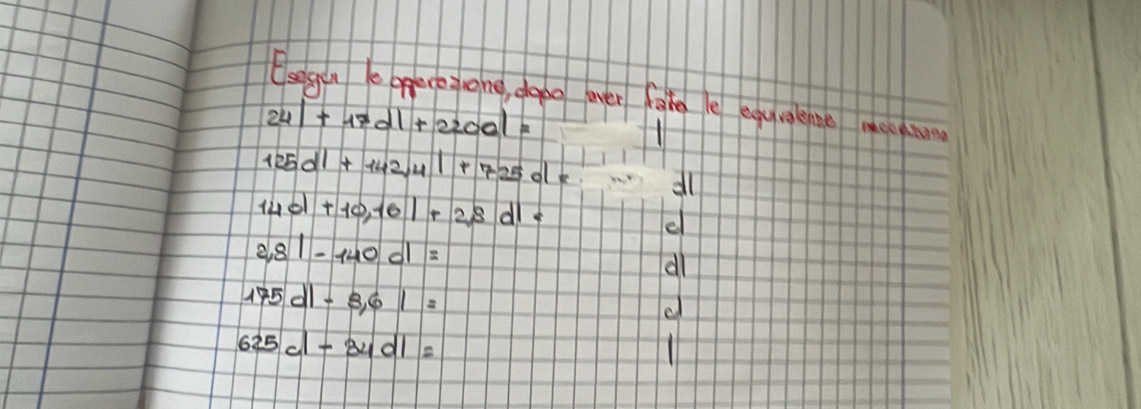 Esegui le operazione, dopo aver fato le equivalenze necessarie
24 l + 17 dl + 220 cl = l
125 dl + 142,4 l + 725 cl = dl
14 dl + 10,16 l + 2,8 dl = cl
2,8 l - 140 cl = dl
175 dl - 8,6 l = cl
625 cl - 34 dl = l